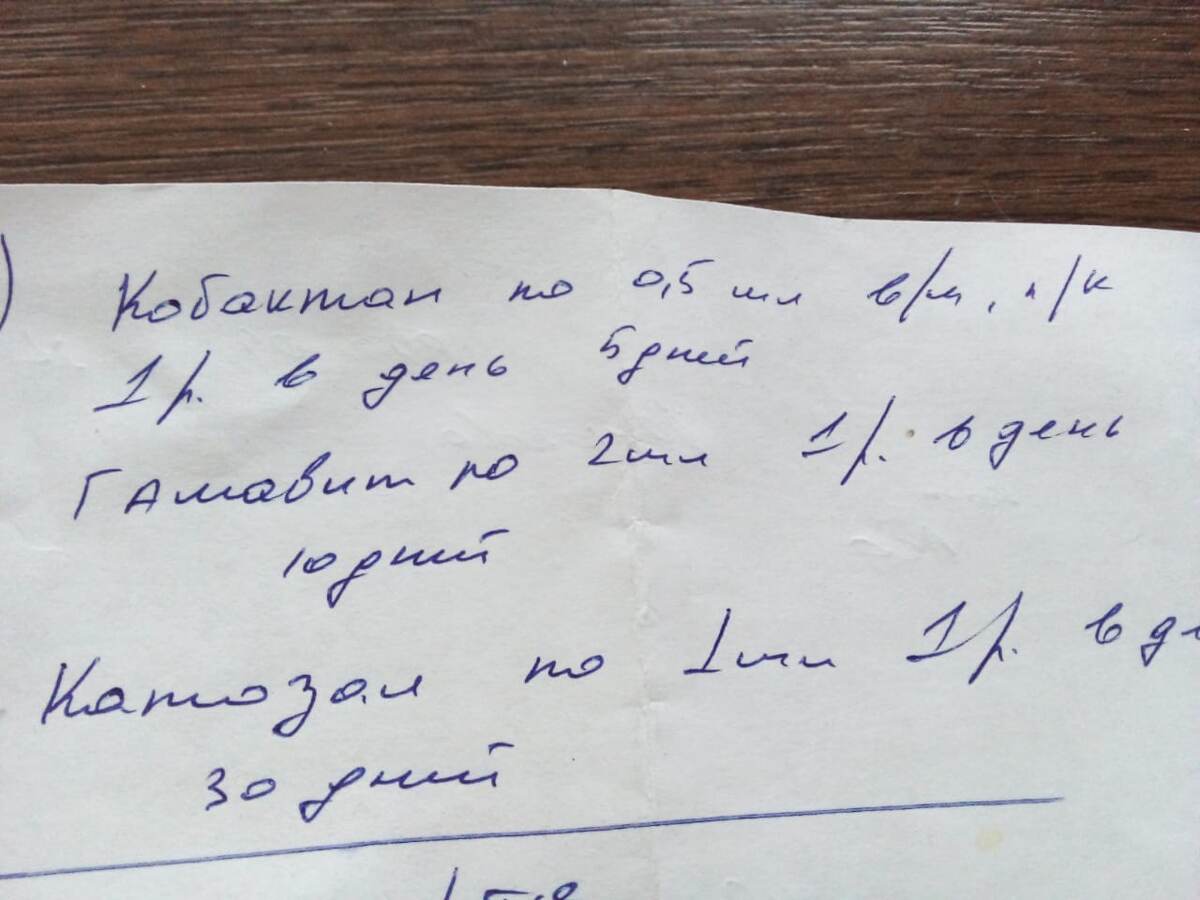 Кобактан по 0,5 мл в/м, п/к
1 р. в день 5 дней
Гамавит по 2 мл 1 р. в день
10 дней
Катозал по 1 мл 1 р. в
30 дней